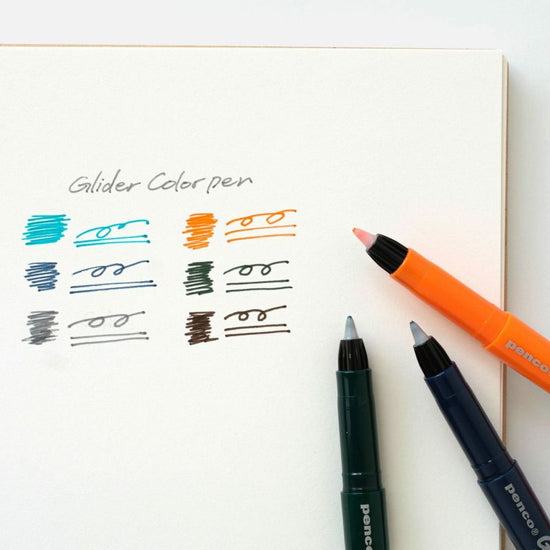 Glider Color pen
penco
penco®
penco